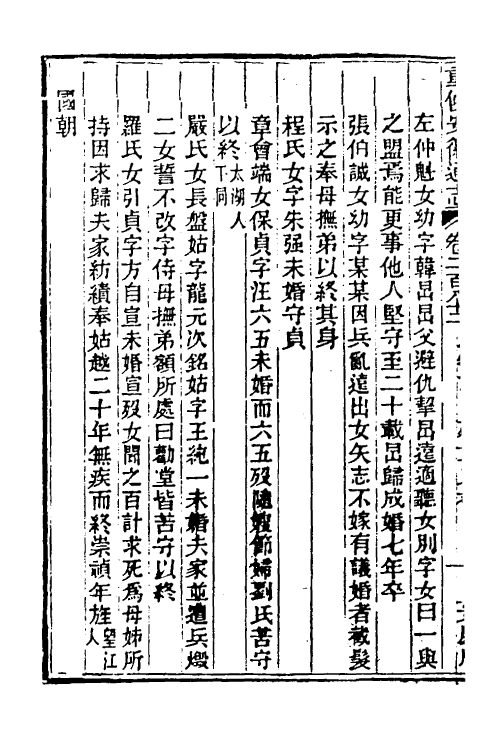 重修安徽通志 卷二百六十二
左仲魁女幼字韓昂昂父避仇挈昂遠適聽女別字女曰一與
之盟焉能更事他人堅守至二十載昂歸成婚七年卒
張伯誠女幼字某某因兵亂遠出女矢志不嫁有議婚者截髮
示之奉母撫弟以終其身
程氏女字朱强未婚守貞
章曾端女保貞字汪六五未婚而六五歿隨嫂節婦劉氏苦守
以終太湖人下同
嚴氏女長盤姑字龍元次銘姑字王純一未婚夫家並遭兵燬
二女誓不改字侍母撫弟額所處曰勸堂皆苦守以終
羅氏女引貞字方自宣未婚宣歿女聞之百計求死爲母姊所
持因求歸夫家紡績奉姑越二十年無疾而終崇禎年旌望江人
國朝